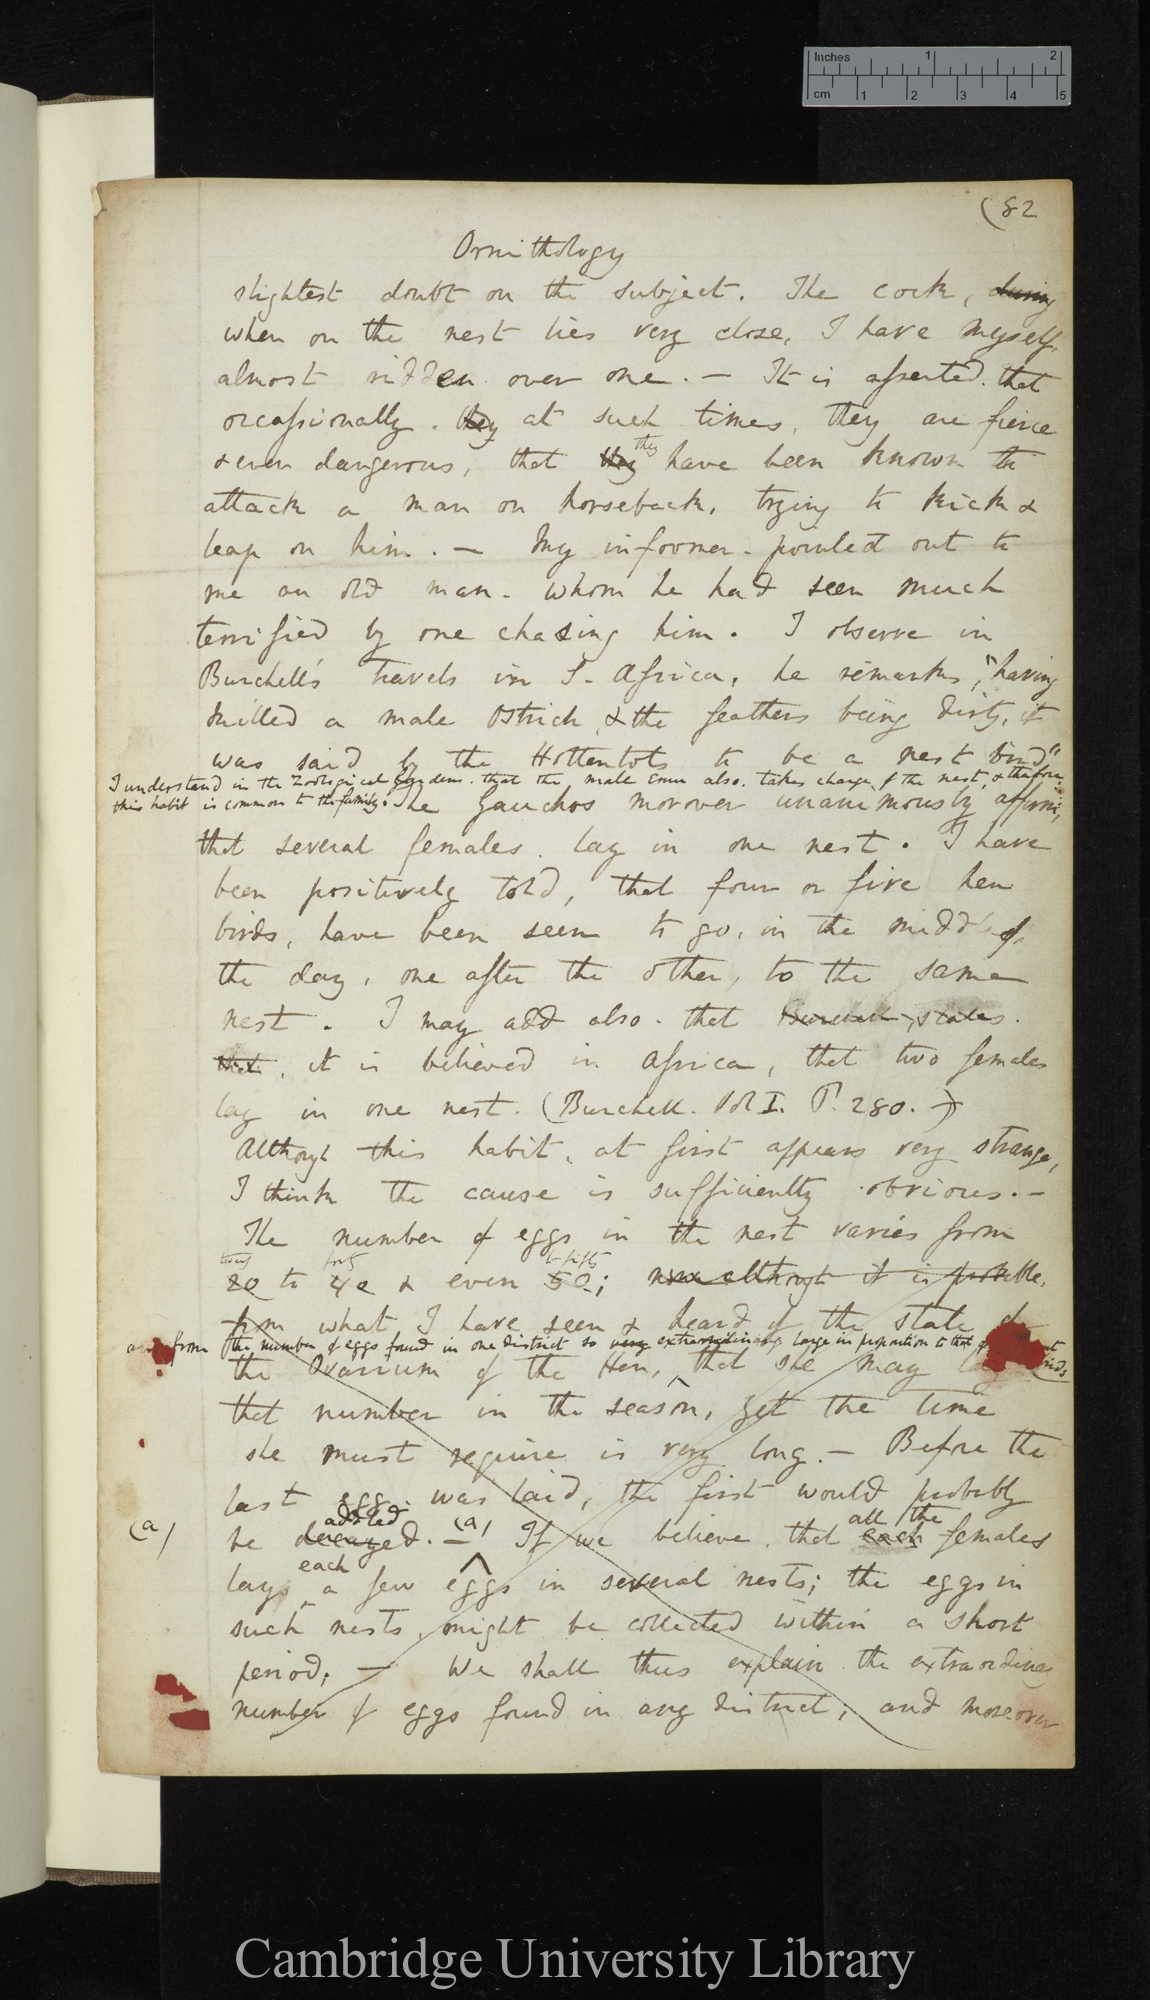 Inches 1 2
cm 1 2 3 4 5
(82
Ornithology
slightest doubt on the subject. The cock, during
when on the nest lies very close, I have myself
almost ridden over one. — It is asserted that
occasionally. they at such times, they are fierce
& even dangerous, that they they have been known to
attack a man on horseback, trying to kick &
leap on him. — My informer pointed out to
me an old man. whom he had seen much
terrified by one chasing him. I observe in
Burchell's travels in S. Africa, he remarks, "having
killed a male Ostrich, & the feathers being dirty, it
was said by the Hottentots to be a nest bird"
I understand in the Zoological Gardens. that the male Emu also. takes charge of the nest, & therefore
this habit is common to the family.
The Gauchos morover unanimously affirm,
that several females. lay in one nest. I have
been positively told, that four or five hen
birds, have been seen to go, in the middle of
the day, one after the other, to the same
nest. I may add also. that Burchell, states.
that, it is believed in Africa, that two females
lay in one nest. (Burchell. Vol I. P. 280.)
Although this habit, at first appears very strange,
I think the cause is sufficiently obvious. —
The number of eggs in the nest varies from
twenty forty to fifty
20 to 40 & even 50; now although it is probable,
from what I have seen & heard of the state of
and from the number of eggs found in one district so very extraordinary large in proportion to that of
the Ovarium of the Hen, that she may lay
that number in the season, yet the time
she must require is very long. — Before the
last egg was laid, the first would probably
addled (a) all the
(a)
be decayed. — If we believe, that each females
each
lays a few eggs in several nests; the eggs in
such nests, might be collected within a short
period; — We shall thus explain the extraordinary
number of eggs found in any district; and moreover
Cambridge University Library